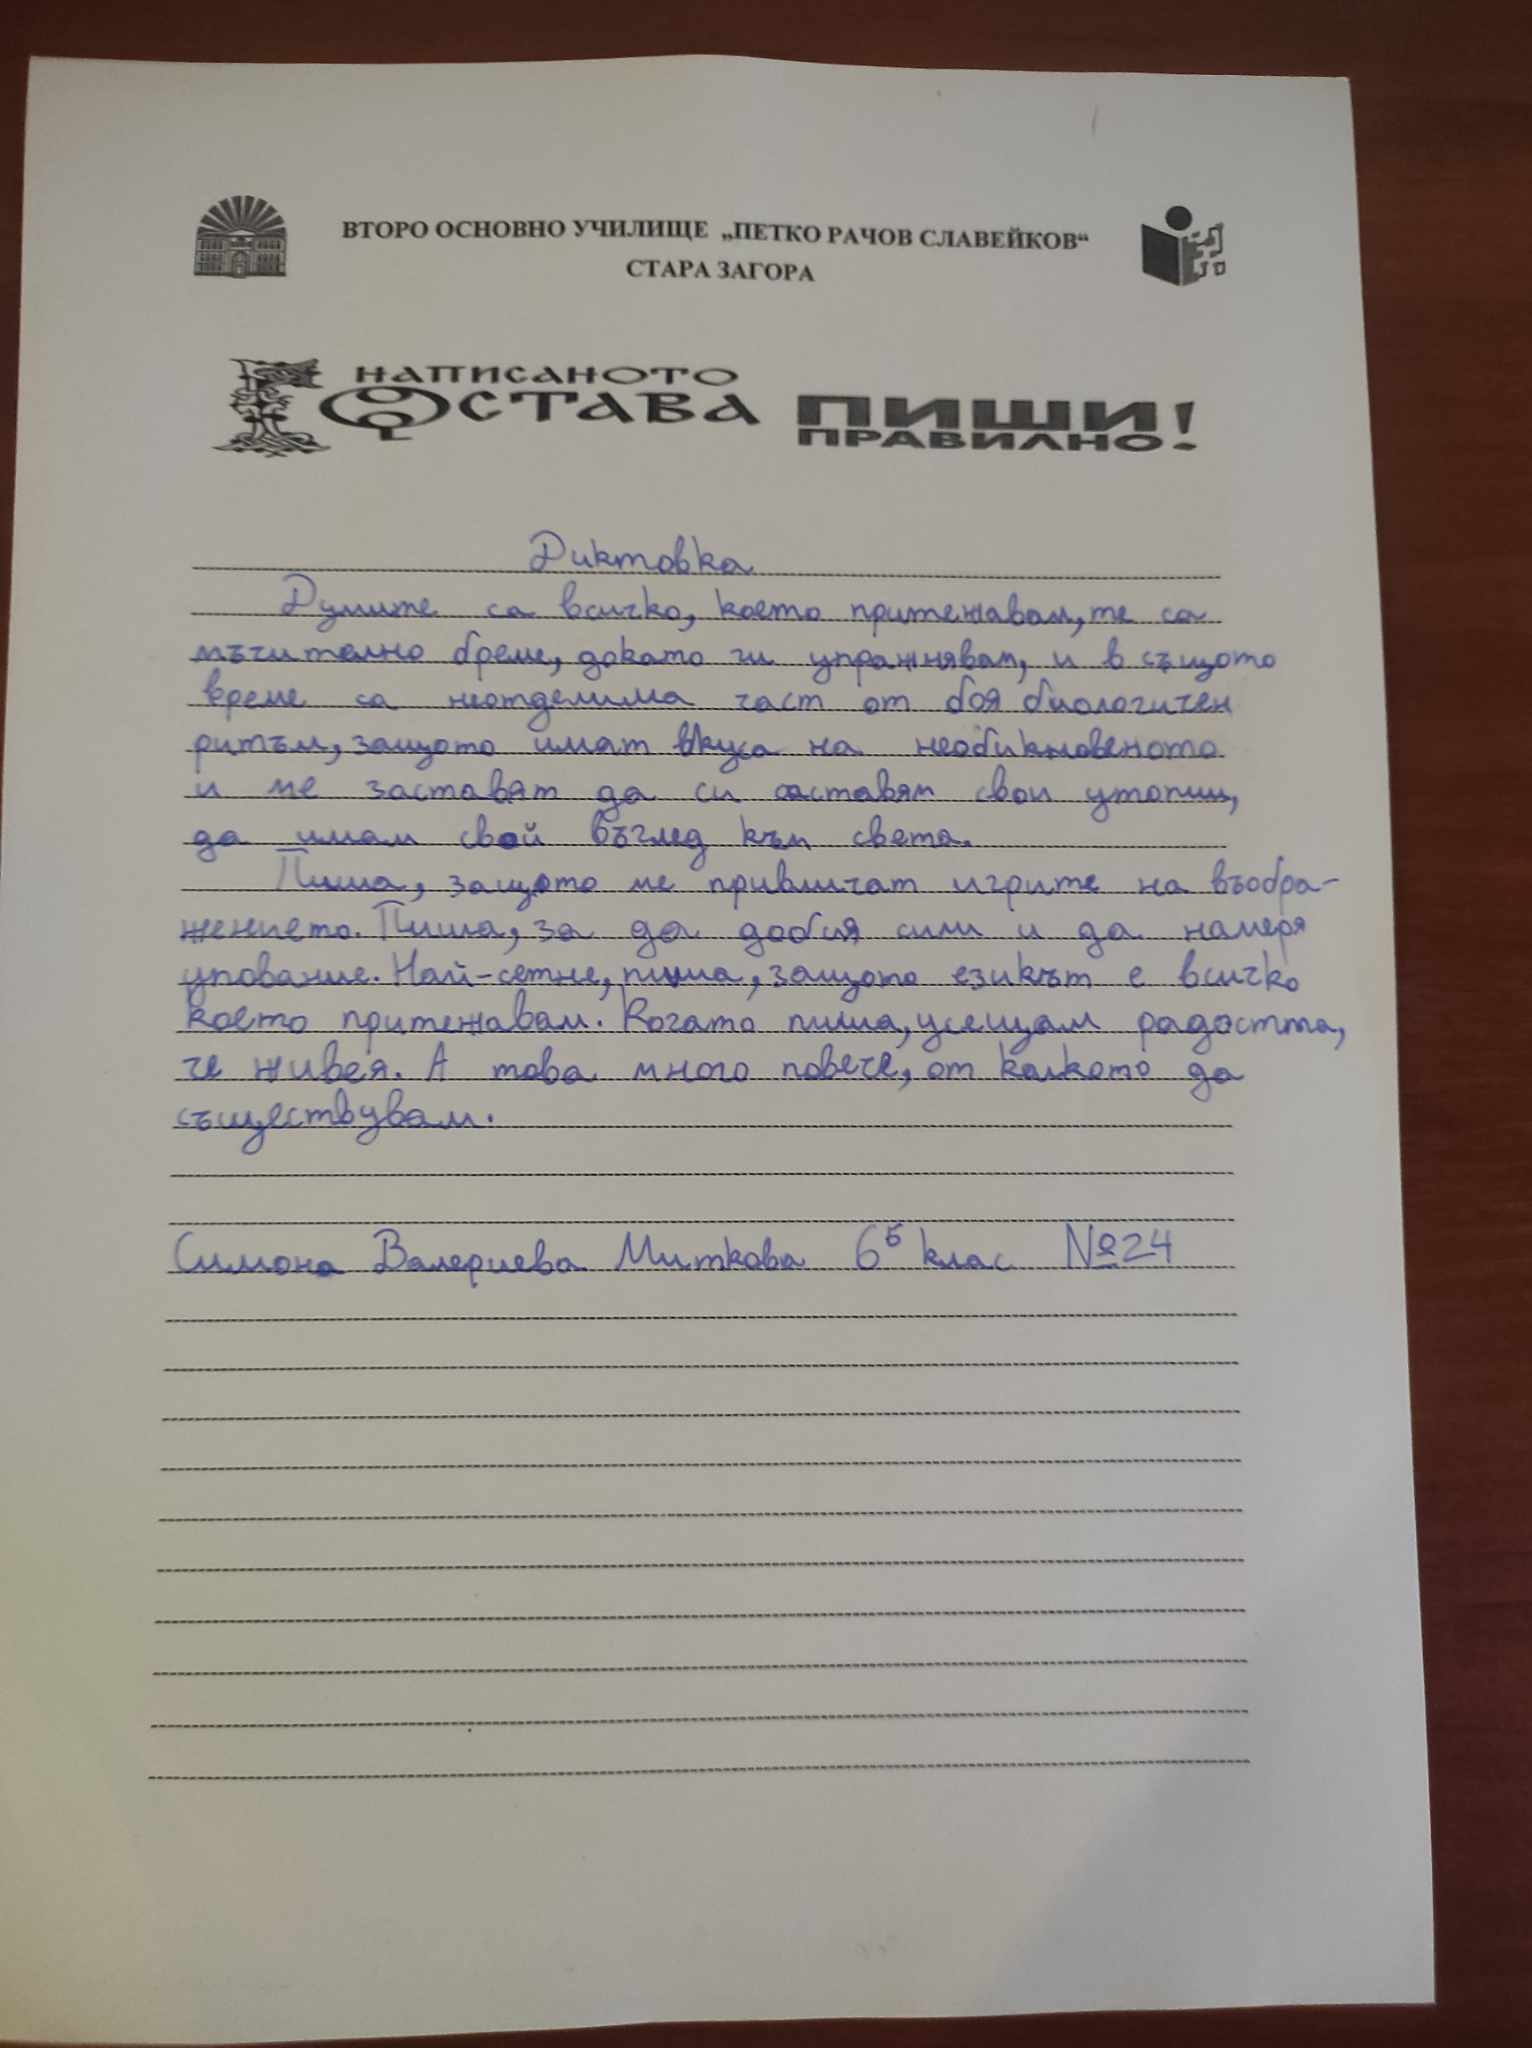 ВТОРО ОСНОВНО УЧИЛИЩЕ „ПЕТКО РАЧОВ СЛАВЕЙКОВ“
СТАРА ЗАГОРА
НАПИСАНОТО
ОСТАВА
ПИШИ
ПРАВИЛНО!
Диктовка
Думите са всичко, което притежавам, те са
мъчително бреме, докато ги упражнявам, и в същото
време са неотделима част от боя биологичен
ритъм, защото имат вкуса на необикновеното
и ме заставят да си съставям свои утопии,
да имам свой възглед към света.
Пиша, защото ме привличат игрите на въобра-
жението. Пиша, за да добия сили и да намеря
упование. Най-сетне, пиша, защото езикът е всичко
което притежавам. Когато пиша, усещам радостта,
че живея. А това много повече, от колкото да
съществувам.
Симона Валериева Миткова 6б клас №24